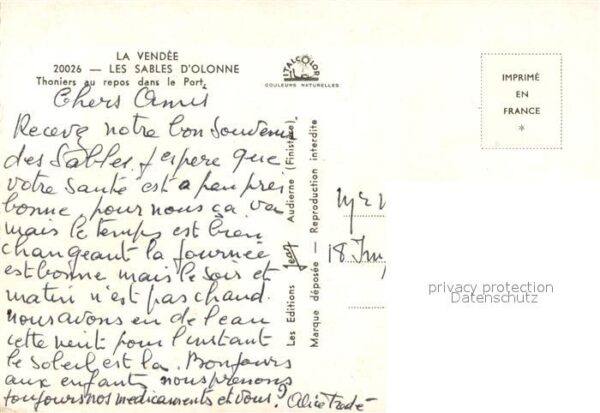 LA VENDÉE
20026 — LES SABLES D'OLONNE
Thoniers au repos dans le Port.
ITALCOLOR
COULEURS NATURELLES
IMPRIMÉ
EN
FRANCE
*
Chers Amis
Recevez notre bon souvenir
des Sables. J'espere que
votre Santé est a peu pres
bonne, pour nous ça va
mais le temps est bien
changeant la journée
est bonne mais le soir et
matin n'est pas chaud.
nous avons eu de l'eau
cette nuit pour l'instant
le soleil est la. Bonjours
aux enfants, nous prenons
toujours nos medicaments et vous? Alice
Les Editions Jean Audierne (Finistère)
Marque déposée — Reproduction interdite
18
privacy protection
Datenschutz